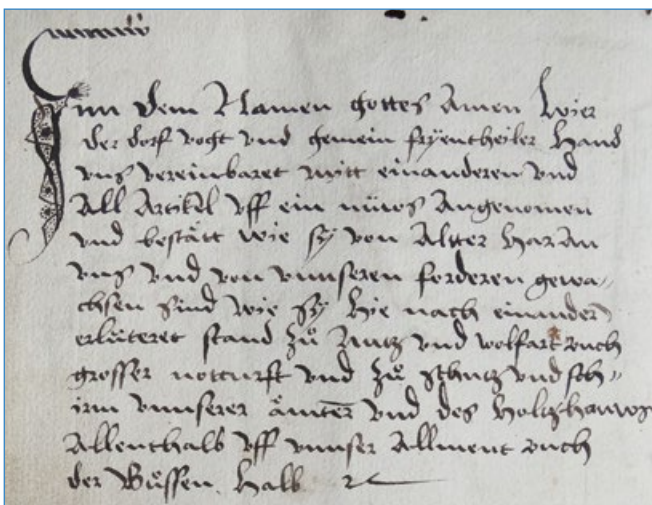 Inn dem Namen gottes Amen Wier
der dorf vogt vnd gemein fryentheiler Hand
vns vereinbaret mitt einanderen vnd
All Artikel vff ein nüws Angenomen
vnd bestätt wie sy von Altter har An
vns vnd von vnnseren forderen gewa„
chsen sind wie sy hie nach einander
erlüteret stand zů Nutz vnd wolfart ouch
grosser notturft vnd zů schutz vnd sch„
irm vnnserer ämter vnd des holtzhauws
Allenthalb vff vnnser Allment ouch
der Bůssen halb